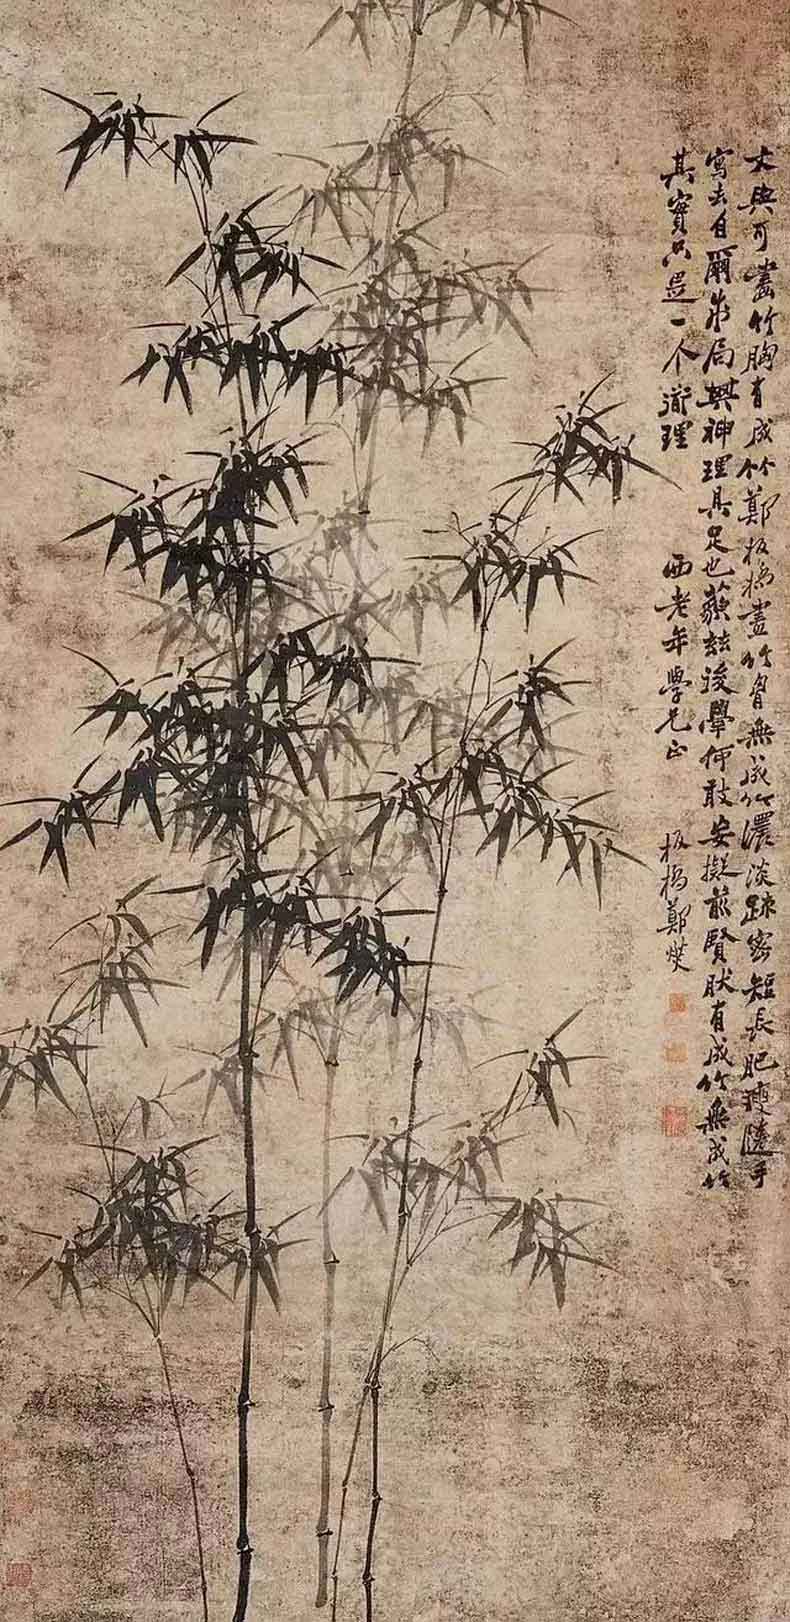 文與可畫竹胸有成竹鄭板橋畫竹胷無成竹濃淡疎密短長肥瘦隨手
寫去自爾成局其神理具足也藐兹後學何敢妄擬前賢肰有成竹無成竹
其實只是一个道理 西老年學兄正 板橋鄭燮